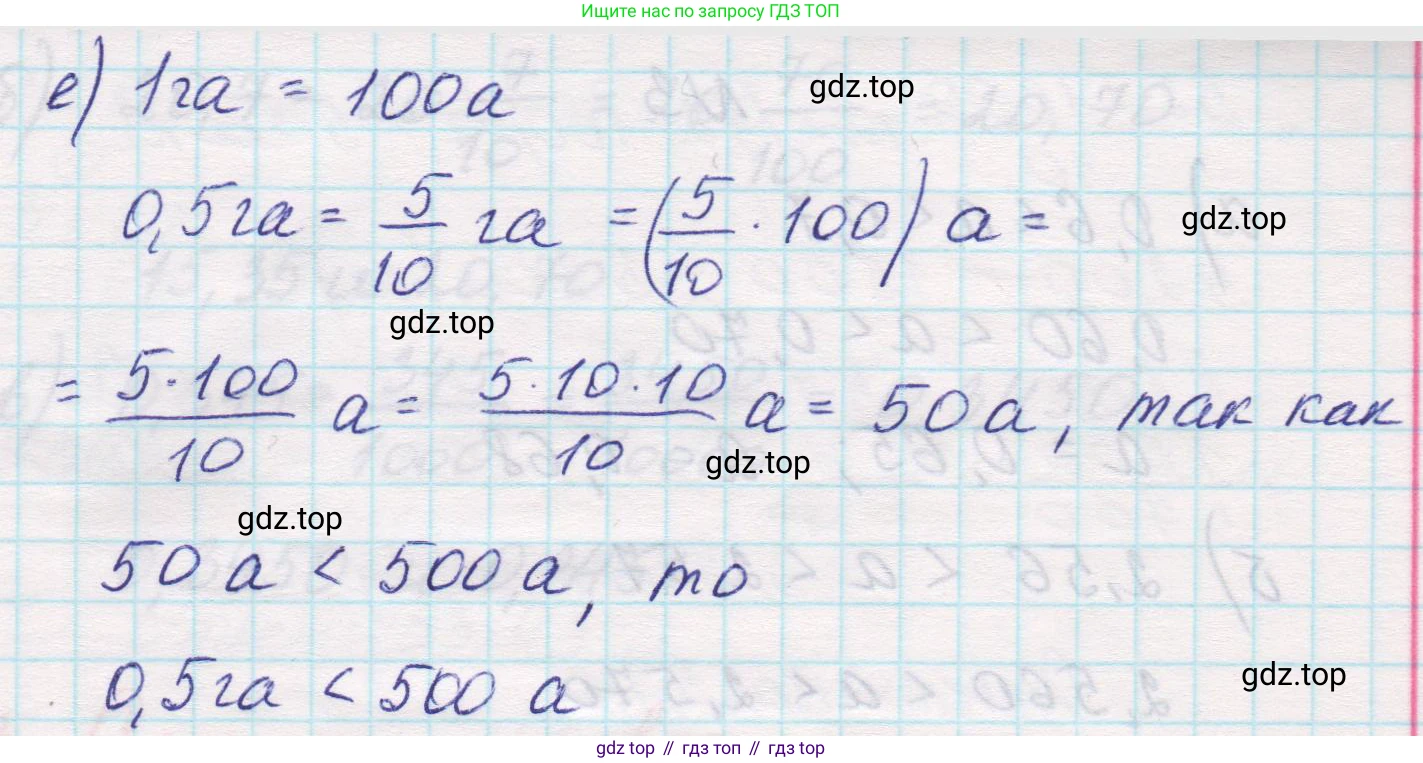 Ищите нас по запросу ГДЗ ТОП
е) 1га = 100а
gdz.top
0,5га = 5/10 га = (5/10 · 100) а =
gdz.top
gdz.top
= 5·100/10 а = 5·10·10/10 а = 50а, так как
gdz.top
gdz.top
50 а < 500 а, то
0,5га < 500 а
gdz.top
gdz top // гдз топ // гдз top